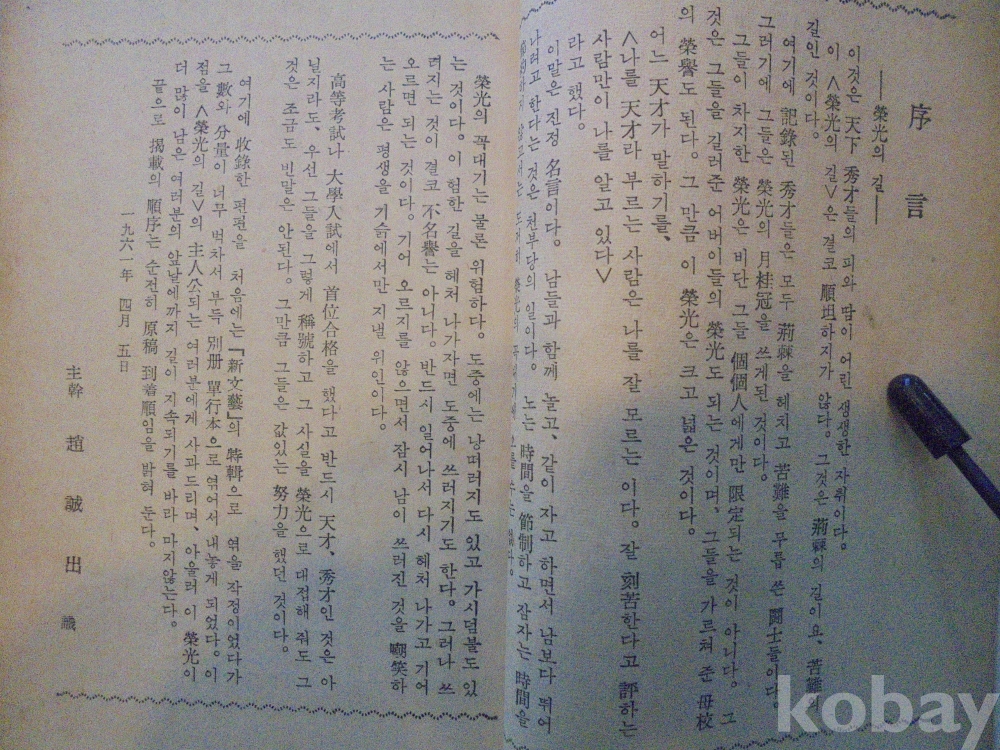 序言
──榮光의 길──
이것은 天下 秀才들의 피와 땀이 어린 생생한 자취이다.
이 <榮光의 길>은 결코 順坦하지가 않다. 그것은 荊棘의 길이요, 苦難의
길인 것이다.
여기에 記錄된 秀才들은 모두 荊棘을 헤치고 苦難을 무릅 쓴 鬪士들이다.
그러기에 그들은 榮光의 月桂冠을 쓰게된 것이다.
그들이 차지한 榮光은 비단 그들 個個人에게만 限定되는 것이 아니다. 그
것은 그들을 길러준 어버이들의 榮光도 되는 것이며, 그들을 가르쳐 준 母校
의 榮譽도 된다. 그 만큼 이 榮光은 크고 넓은 것이다.
어느 天才가 말하기를,
<나를 天才라 부르는 사람은 나를 잘 모르는 이다. 잘 刻苦한다고 評하는
사람만이 나를 알고 있다>
라고 했다.
이말은 진정 名言이다. 남들과 함께 놀고, 같이 자고 하면서 남보다 뛰어
나려고 한다는 것은 천부당의 일이다. 노는 時間을 節制하고 잠자는 時間을
榮光의
榮光의 꼭대기는 물론 위험하다. 도중에는 낭떠러지도 있고 가시덤불도 있
는 것이다. 이 험한 길을 헤쳐 나가자면 도중에 쓰러지기도 한다. 그러나 쓰
러지는 것이 결코 不名譽는 아니다. 반드시 일어나서 다시 헤쳐 나가고 기어
오르면 되는 것이다. 기어 오르지를 않으면서 잠시 남이 쓰러진 것을 嘲笑하
는 사람은 평생을 기슭에서만 지낼 위인이다.
高等考試나 大學入試에서 首位合格을 했다고 반드시 天才, 秀才인 것은 아
닐지라도, 우선 그들을 그렇게 稱號하고 그 사실을 榮光으로 대접해 줘도 그
것은 조금도 빈말은 안된다. 그만큼 그들은 값있는 努力을 했던 것이다.
여기에 收錄한 편편을 처음에는 「新文藝」의 特輯으로 엮을 작정이었다가
그 數와 分量이 너무 벅차서 부득 別册 單行本으로 엮어서 내놓게 되었다. 이
점을 <榮光의 길>의 主人公되는 여러분에게 사과드리며, 아울러 이 榮光이
더 많이 남은 여러분의 앞날에까지 길이 지속되기를 바라 마지않는다.
끝으로 揭載의 順序는 순전히 原稿 到着順임을 밝혀 둔다.
一九六一年 四月 五日
主幹 趙誠出 識
kobay